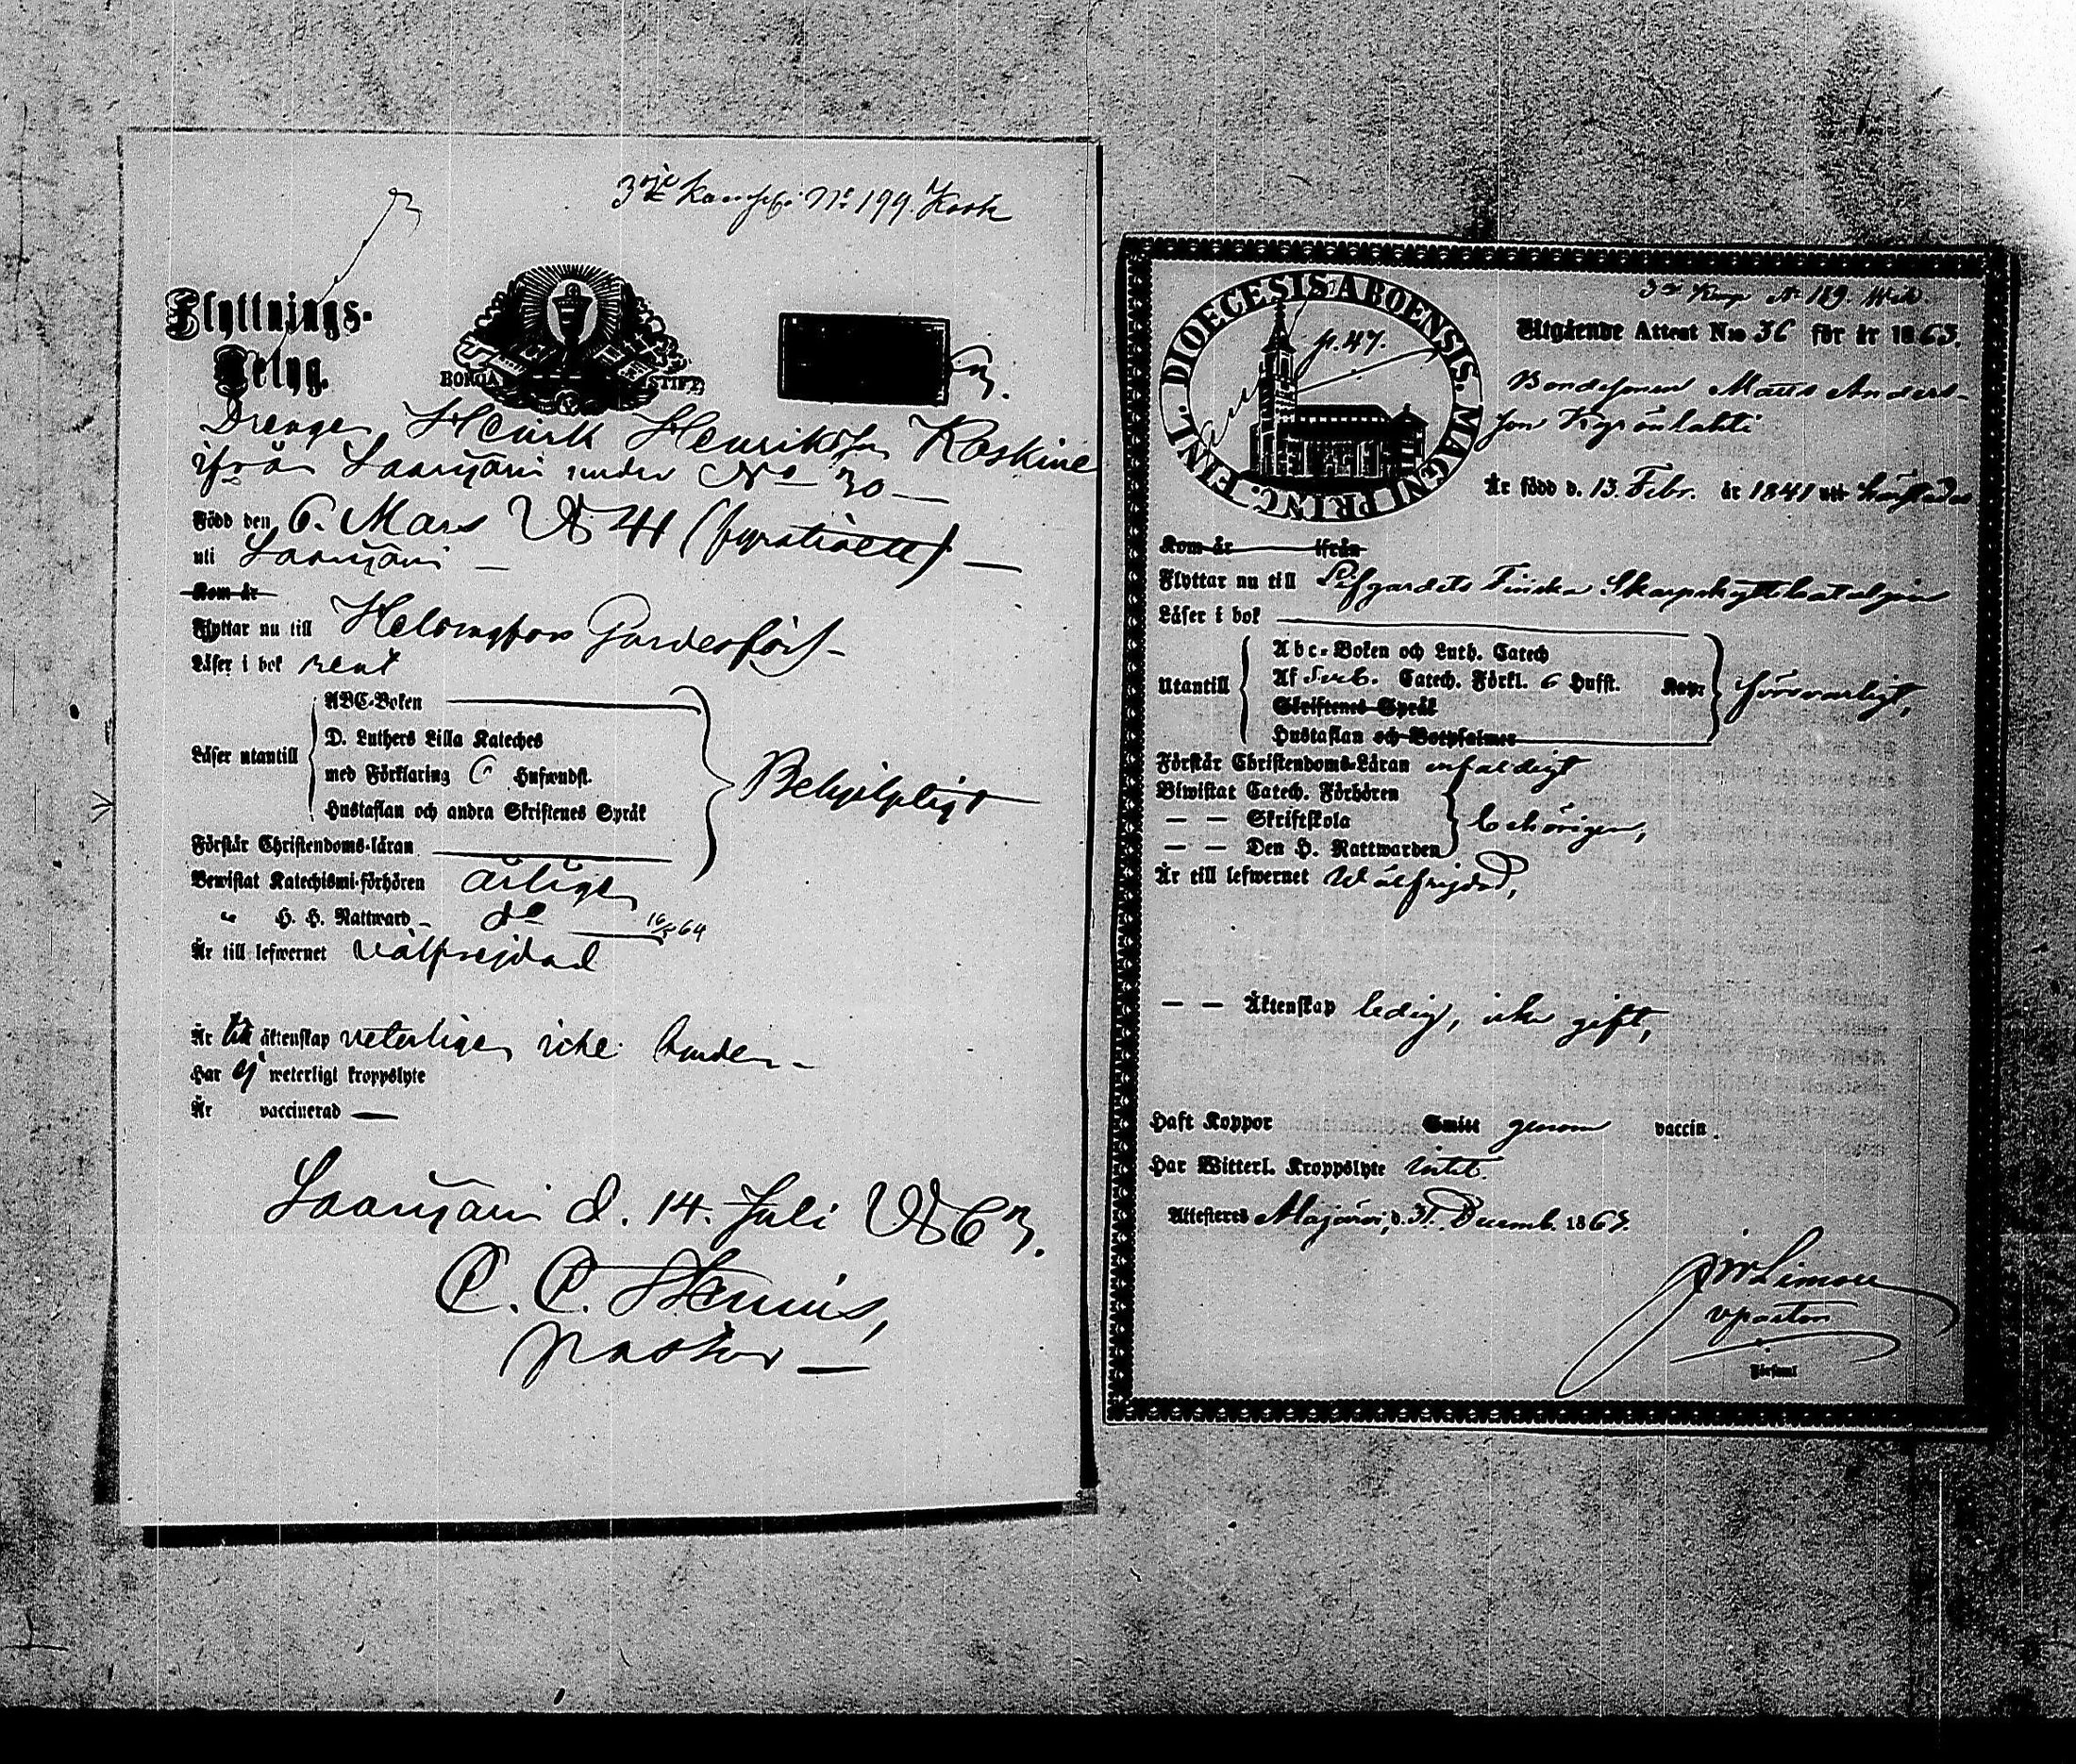 3dje Komp: No 199. Kosk
Flyttnings-
Betyg.
BORGÅ STIFT
Drengen Henrik Henriksson Koskine
ifrån Saarijärvi under No 30
Född den 6. Mars 1841 (fyratioett)
uti Saarijärvi
Kom år
Flyttar nu till Helsingfors
Läser i bok rent
ABC-Boken
D. Luthers Lilla Kateches
Läser utantill
med Förklaring 6 Hufwudst.
Hustaflan och andra Skriftenes Språk
Behjelpligt
Förstår Christendoms-läran
Bewistat Katechismi-förhören årligen
" H. H. Nattward do 64
Är till lefwernet välfrejdad
Är till äktenskap veterligen icke bunden
Har ej weterligt kroppslyte
Är vaccinerad
Saarijärvi d. 14. Juli 1863.
C. C. Stenius,
pastor
DIOECESIS ABOENSIS. MAGNI PRINC. FINL.
p. 47.
3de Komp No 189.
Utgående Attest No 36 för år 1863.
Bondesonen Matts Anders-
son Kyrönlahti
Är född d. 13. Febr. år 1841 uti
Kom år ifrån
Flyttar nu till Lifgardets Finska Skarpskyttebataljon
Läser i bok
Abc-Boken och Luth. Catech
Utantill
Af Sveb. Catech. Förkl. 6 Hufst. Kap:
Skriftenes Språk
Hustaflan och Botpsalmer
försvarligt,
Förstår Christendoms-Läran enfaldigt
Biwistat Catech. Förhören
— — Skriftskola
— — Den H. Nattwarden
behörigen,
Är till lefwernet Wälfrejdad,
— — Äktenskap ledig, icke gift,
Haft Koppor Smitt genom vaccin.
Har Witterl. Kroppslyte intet.
Attesteras Alajärvi, d. 31. Decemb. 1863.
v pastor
Församl